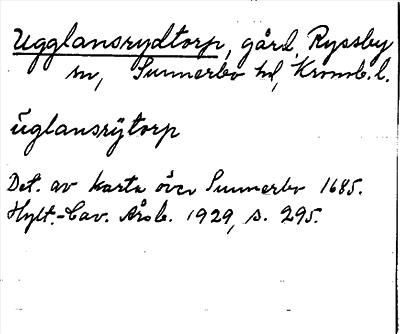 Ugglansrydtorp, gård, Ryssby
sn, Sunnerbo hd, Kronob. l.
Uglansrÿtorp
Det. av karta över Sunnerbo 1685.
Hylt.-Cav. Årsb. 1929, s. 295.